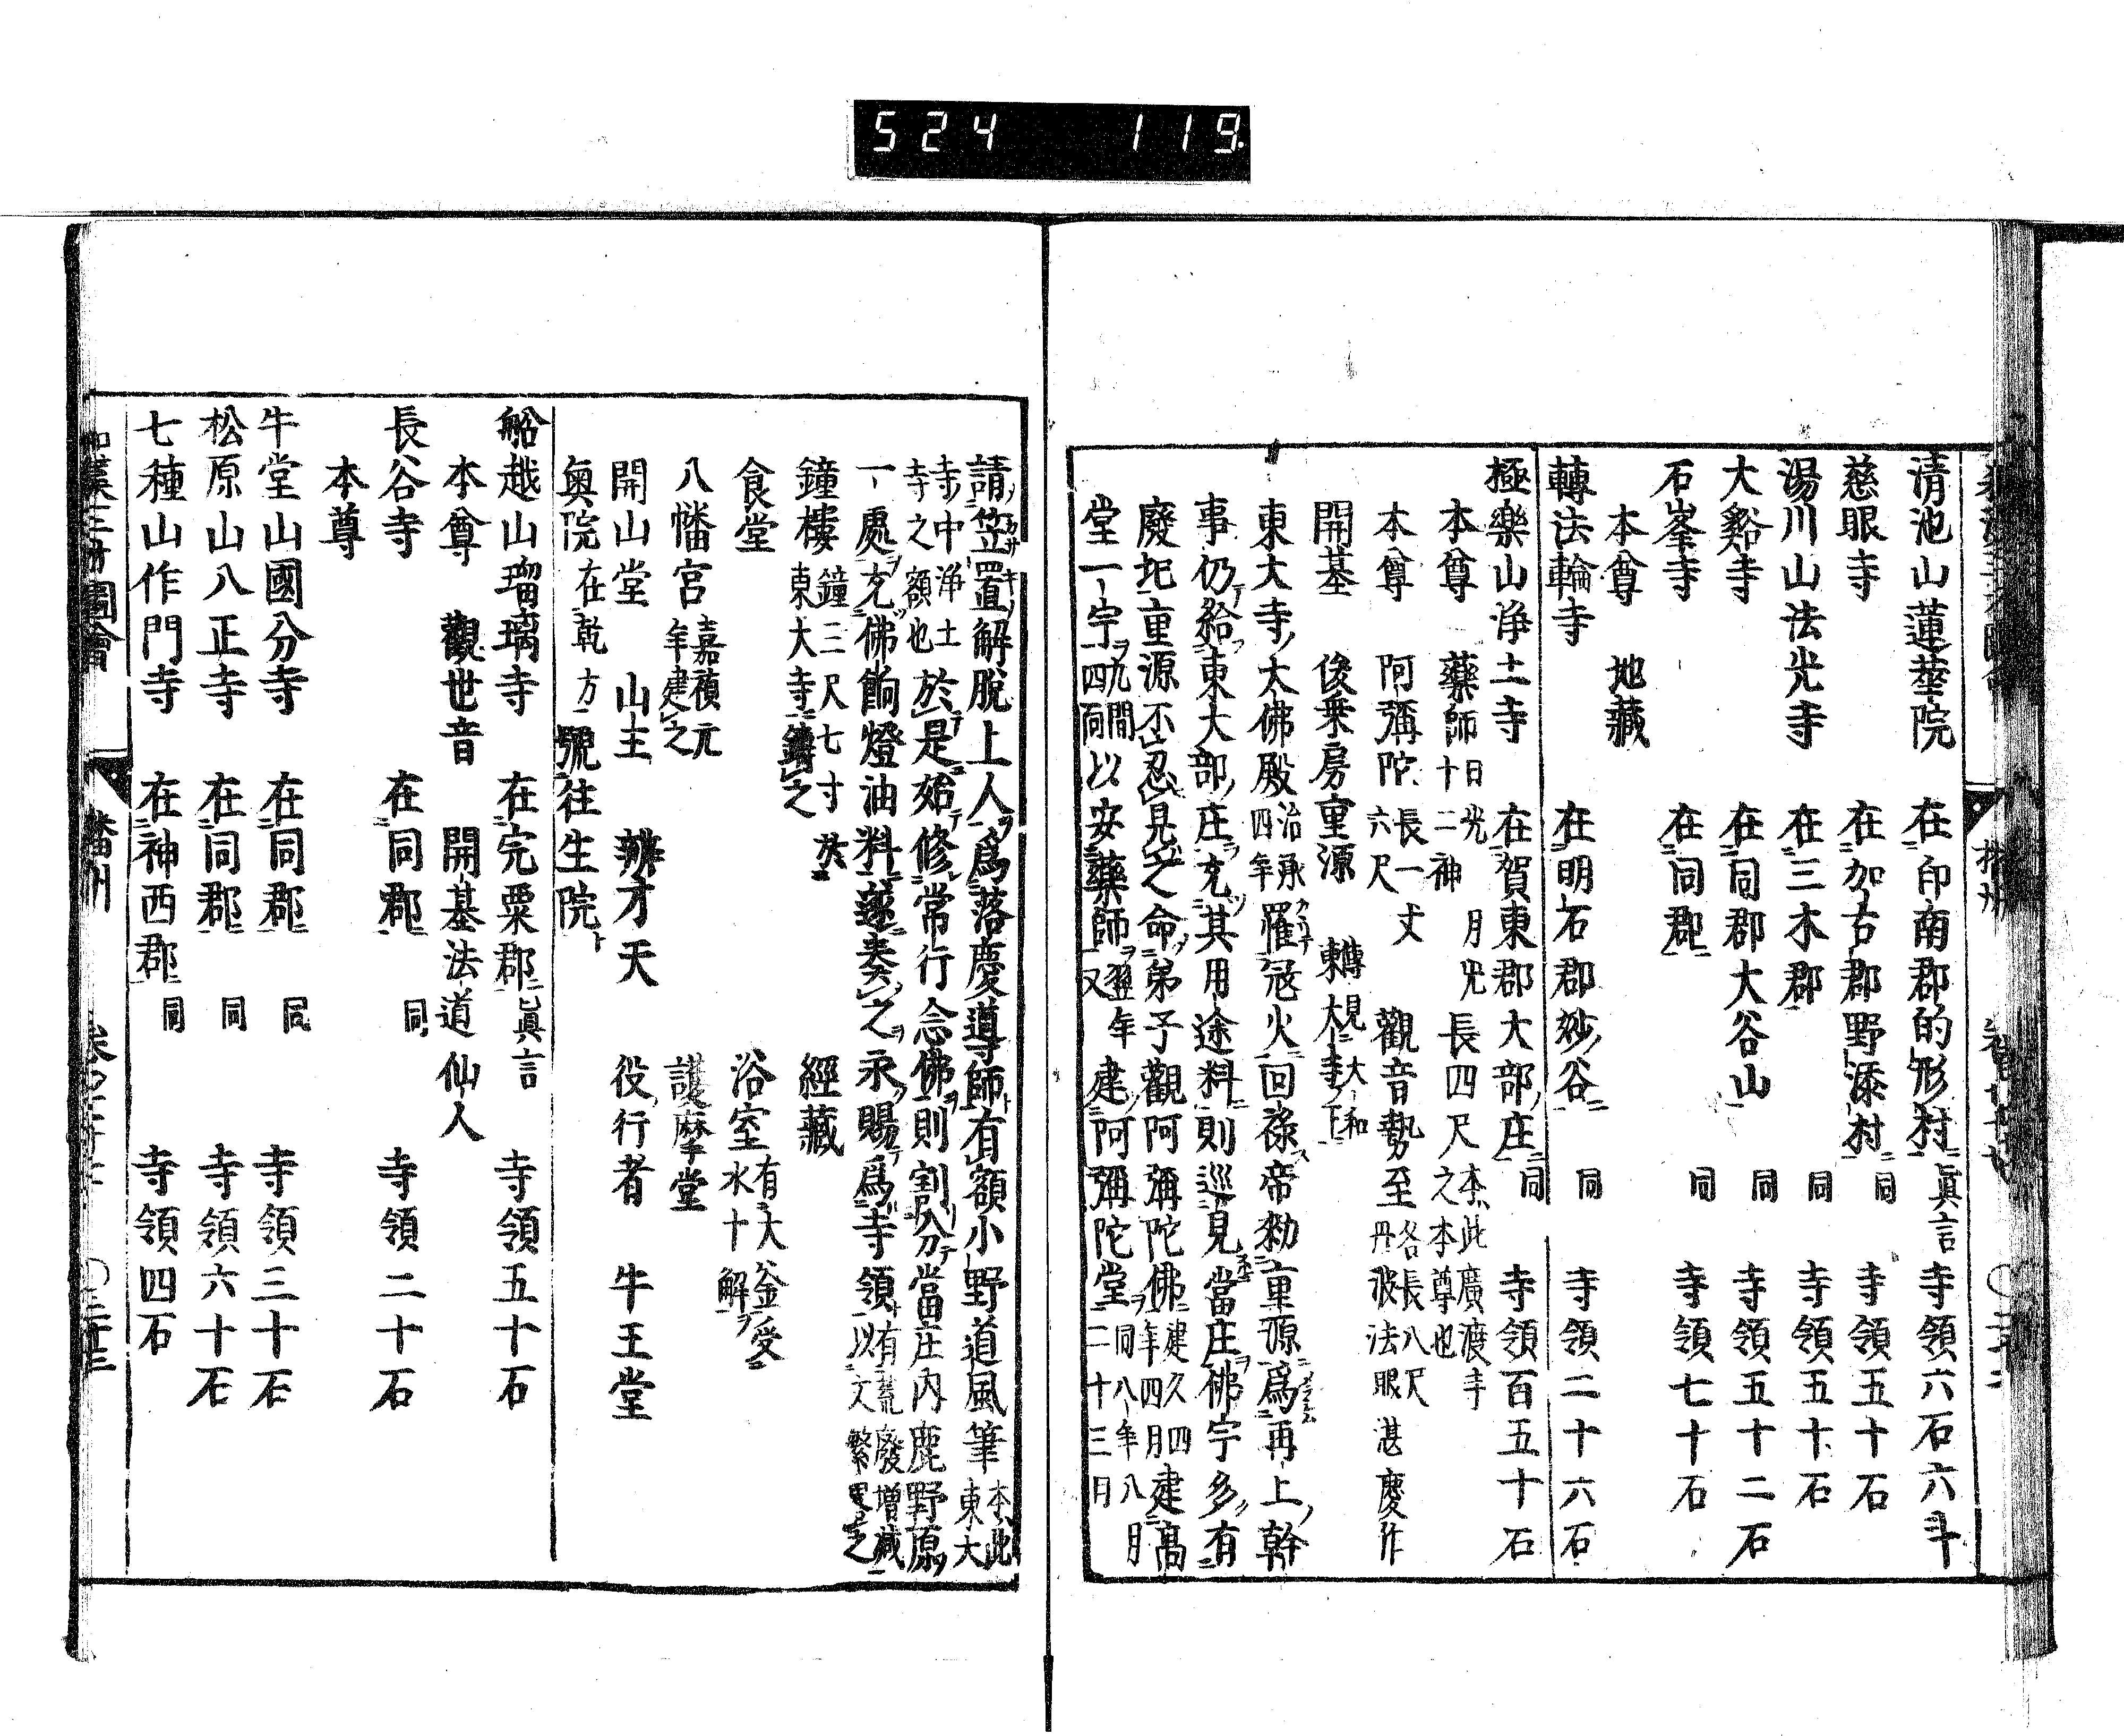 524 119.
清池山蓮華院 在印南郡的形村 眞言 寺領六石六斗
慈眼寺 在加古郡野添村 同 寺領五十石
湯川山法光寺 在三木郡 同 寺領五十石
大谿寺 在同郡大谷山 同 寺領五十二石
石峯寺 在同郡 同 寺領七十石
本尊 地藏
轉法輪寺 在明石郡妙谷 同 寺領二十六石
極樂山淨土寺 在賀東郡大部庄 同 寺領百五十石
本尊 藥師 日光 月光 十二神 長四尺 本此廣渡寺之本尊也
本尊 阿彌陀 長一丈六尺 觀音勢至 各長八尺 丹波法眼湛慶作
開基 俊乘房重源 傳見大和東大寺下
東大寺大佛殿治承四年罹冦火回祿帝勅重源爲再上幹
事仍給東大部庄充其用途料則巡見當庄佛宇多有
廢圯重源不忍見之命弟子觀阿彌陀佛建久四年四月建髙
堂一宇九間四面以安藥師又翌年建阿彌陀堂同八年八月二十三日
請笠置解脫上人爲落慶導師有額小野道風筆本此東大
寺中淨土寺之額也於是始修常行念佛則割分當庄内鹿野原
一處充佛餉燈油料遂奏之永賜爲寺領有荒廢增減以文繁畧之
鐘樓 鐘二尺七寸於東大寺鑄之 經藏
食堂 浴室 有大釜受水十解
八幡宮 嘉禎元年建之 護摩堂
開山堂 山王 辨才天 役行者 牛王堂
奥院 在乾方 號往生院
船越山瑠璃寺 在完粟郡 眞言 寺領五十石
本尊 觀世音 開基法道仙人
長谷寺 在同郡 同 寺領二十石
本尊
牛堂山國分寺 在同郡 同 寺領三十石
松原山八正寺 在同郡 同 寺領六十石
七種山作門寺 在神西郡 同 寺領四石
播州